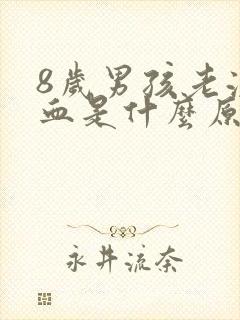 8歲男孩老流
血是什麼原
永井流奈